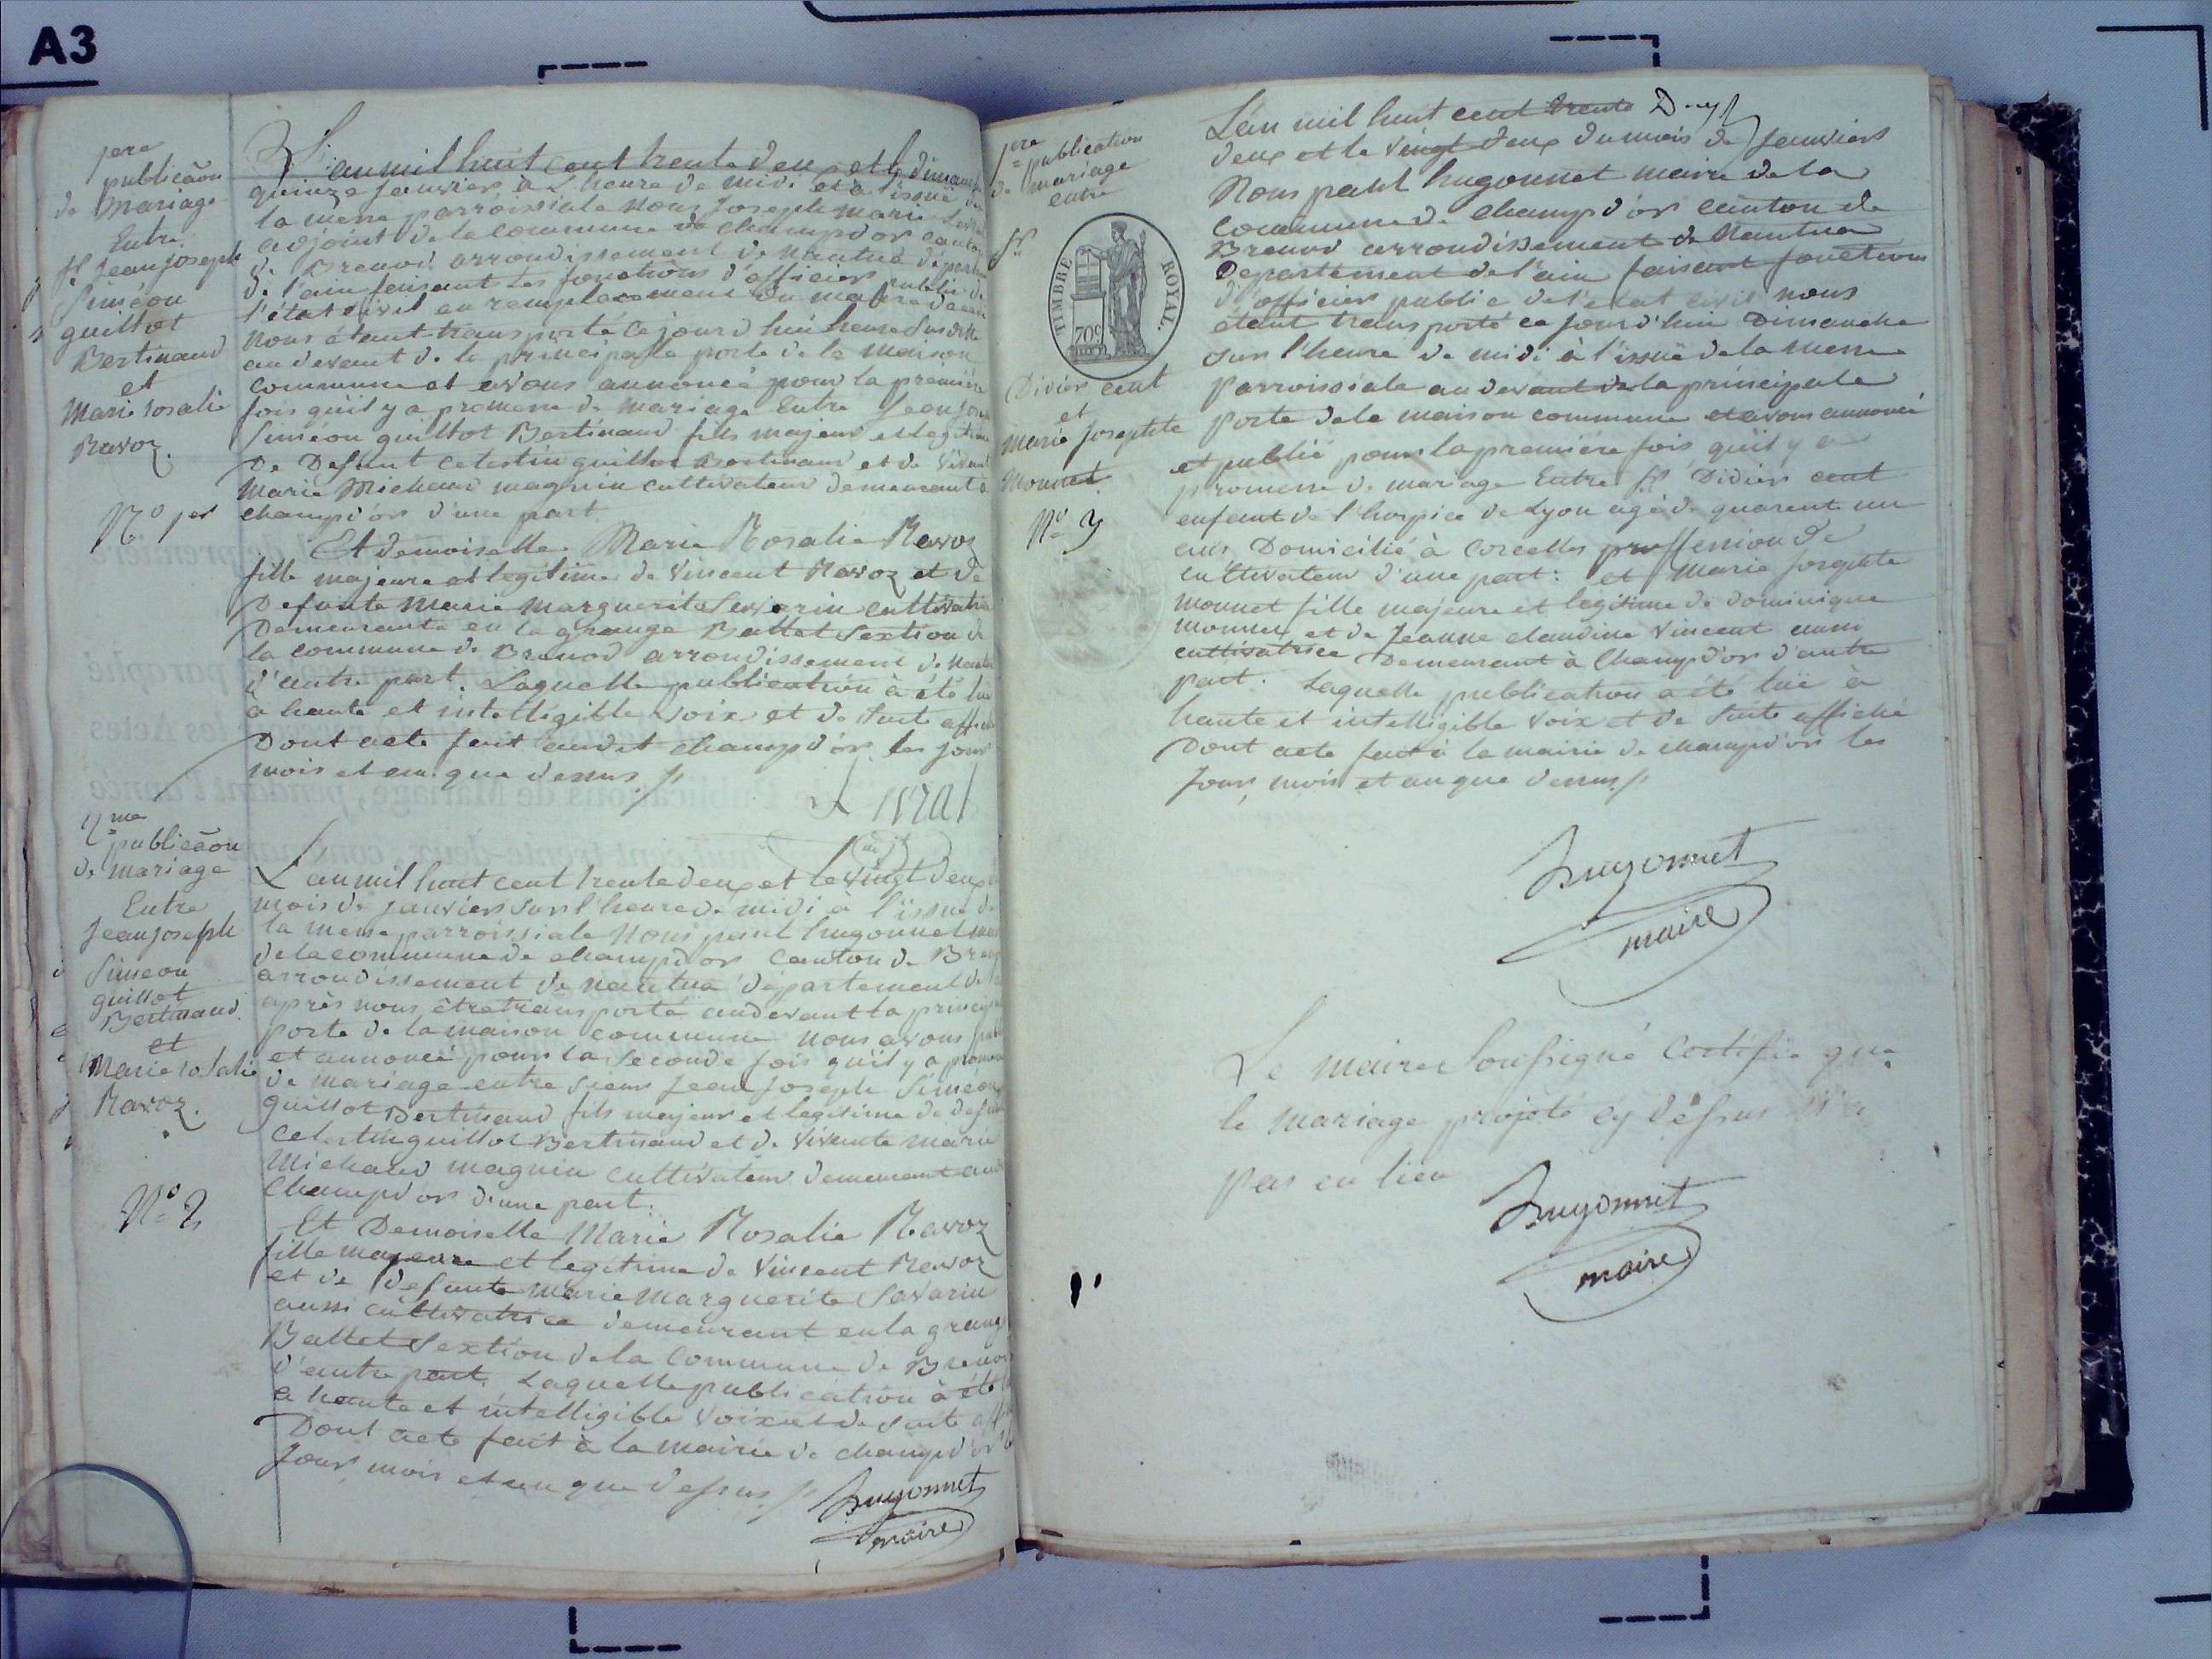 A3
1ere
publicaõn
de mariage
Entre
sr Jean joseph
Siméon
guillot
Bertinand
et
Marie rosalie
Ravoz.
No 1er
L'an mil huit cent trente deux et le dimanche
quinze janvier à L'heure de midi et à l'issue de
la messe parroissiale nous Joseph marie
adjoint de la commune de champd'or canton
de Brenod arrondissement de nantua départ
de l'ain faisant les fonctions d'officier public de
l'état civil en remplacement du maire
Nous étant transporté ce jourd'hui heure susditte
au devant de la principalle porte de la maison
commune et avons annoncé pour la première
fois qu'il y a promesse de mariage Entre Jean Jos
Siméon guillot Bertinand fils majeur et legitime
De Defunt Celestin guillot Bertinand et de vivant
Marie Michaud magnin cultivateur demeurant à
champd'or d'une part.
Et demoiselle Marie Rosalie Ravoz
fille majeure et legitime de Vincent Ravoz et de
Defunte Marie Marguerite Savarin cultivatrice
Demeurante en la grange Ballet Sextion de
la commune de Brenod arrondissement de Nantua
d'autre part. Laquelle publication à été lue
a haute et intelligible voix et de suite affiché
Dont acte fait audit champd'or les jour
mois et an que dessus ./.
2me
publicaõn
de mariage
Entre
Jean joseph
Simeon
guillot
Bertinand.
et
Marie rosalie
Ravoz.
No 2
L'an mil huit cent trente deux et le vingt deux
mois de janvier sur l'heure de midi à l'issue de
la messe parroissiale Nous paul hugonnet
de la commune de champd'or canton de Bren
arrondissement de nantua département de
après nous être transporté audevant la princip
porte de la maison commune nous avons
et annoncé pour la seconde fois qu'il y a promesse
de mariage entre sieur Jean Joseph Siméon
guillot Bertinand fils majeur et legitime de defunt
Celestin guillot Bertinand et de vivante marie
Michaud magnin cultivateur demeurant au
Champd'or d'une part.
Et Demoiselle Marie Rosalie Ravoz
fille majeure et legitime de Vincent Ravoz
et de defunte Marie Marguerite Savarin
aussi cultivatrice demeurant en la grange
Ballet Sextion de la commune de Brenod
d'autre part. Laquelle publication à été
a haute et intelligible voix et de suite
Dont acte fait à la mairie de champd'or
Jour mois et an que dessus ./.
hugonnet
maire
1ere
publication
de mariage
entre
sr
TIMBRE ROYAL.
70c
Didier cent
et
marie Josephte
Monnet
No 3
L'an mil huit cent trente
deux et le vingt deux du mois de Janvier
Nous paul hugonnet maire de la
commune de champd'or canton de
Brenod arrondissement de Nantua
Departement de l'ain faisant fonctions
d'officier public de l'etat civil nous
étant transporté ce jourd'hui Dimanche
sur l'heure de midi à l'issuë de la messe
parroissiale au devant de la principale
porte de la maison commune et avons annoncé
et publié pour la première fois qu'il y a
promesse de mariage Entre sr Didier cent
enfant de l'hospice de Lyon agé de quarent un
ans Domicilié à Corcelles proffession de
cultivateur d'une part: et Marie Josephte
monnet fille majeure et legitime de dominique
monnet et de Jeanne claudine Vincent aussi
cultivatrice Demeurant à Champd'or d'autre
part. Laquelle publication a été luë à
haute et intelligible voix et de suite affiché
Dont acte fait à la mairie de champd'or les
Jour, mois et an que dessus ./.
hugonnet
maire
Le maire soussigné certifie que
le mariage projeté cy dessus n'a
pas eu lieu
hugonnet
maire